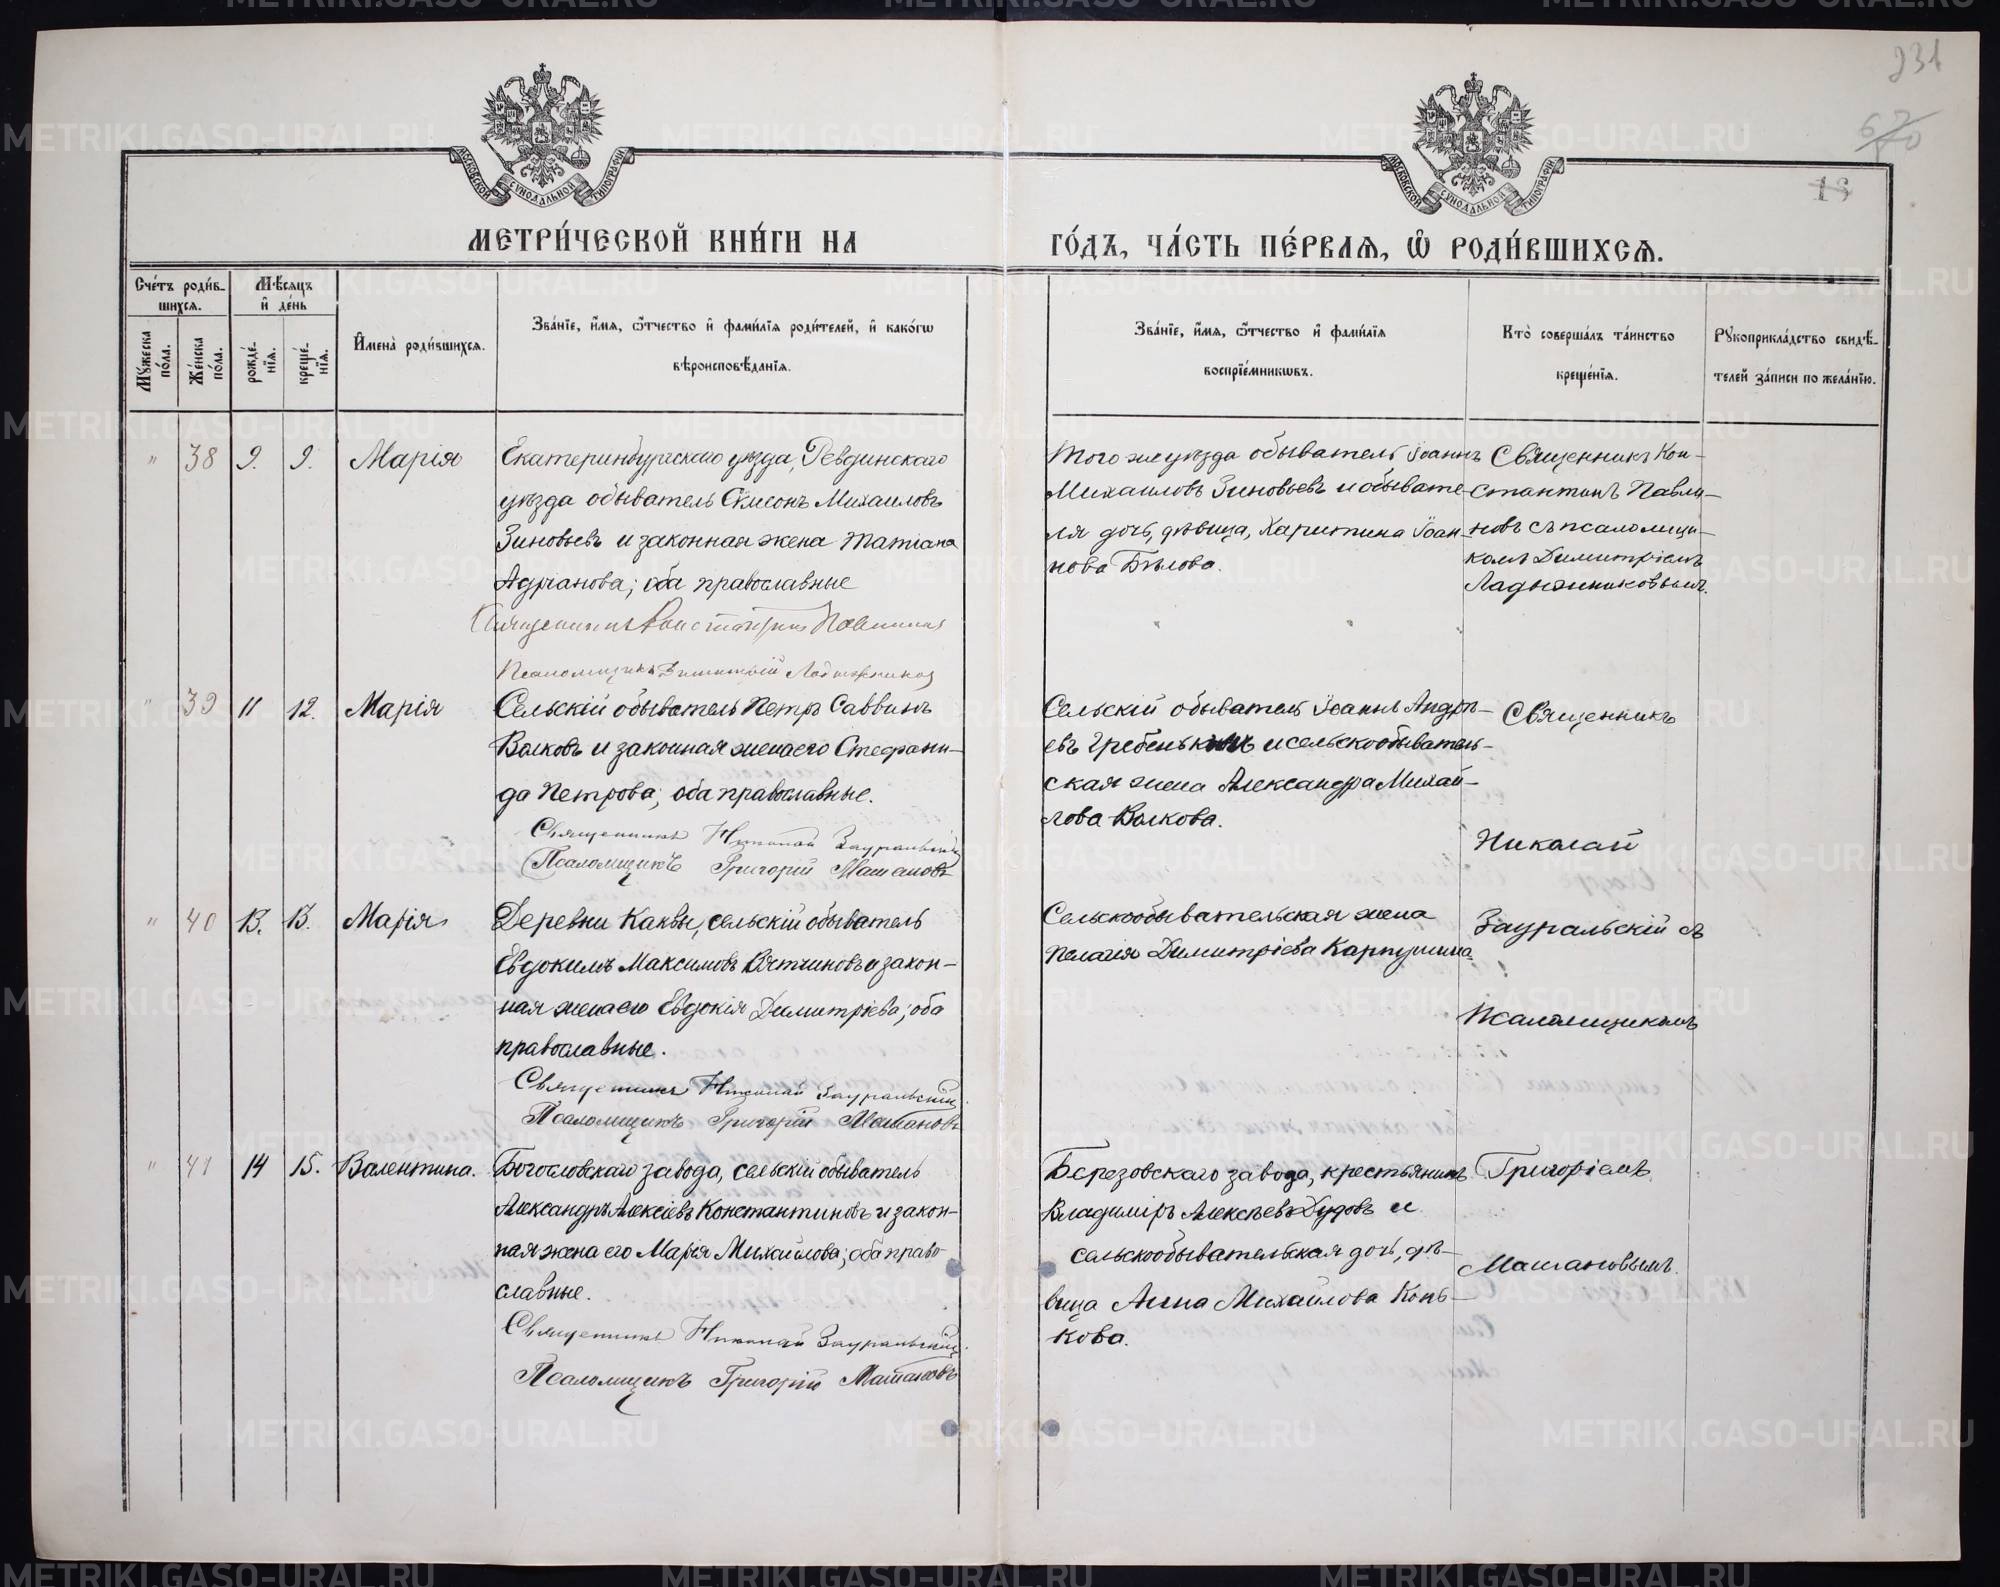 231
13
МОСКОВСКОЙ СѴНОДАЛЬНОЙ ТИПОГРАФІИ
МОСКОВСКОЙ СѴНОДАЛЬНОЙ ТИПОГРАФІИ
МЕТРИ́ЧЕСКОЙ КНИ́ГИ НА
ГО́ДЪ, ЧА́СТЬ ПЕ́РВАЯ, Ѽ РОДИ́ВШИХСЯ.
Сче́тъ роди́в-
шихся.
Мѣ́сяцъ
и҆ де́нь
Мꙋ́жеска по́ла.
Же́нска по́ла.
рожде́-
нїя.
креще́-
нїя.
И҆мена̀ роди́вшихся.
Зва́нїе, и҆́мя, ѻ҆́тчество и҆ фами́лїя роди́телей, и҆ како́гѡ
вѣроисповѣ́данїя.
Зва́нїе, и҆́мя, ѻ҆́тчество и҆ фами́лїя
воспрїе́мниковъ.
Кто̀ соверша́лъ та́инство
креще́нїя.
Рꙋкоприкла́дство свидѣ́-
телей за́писи по жела́нїю.
" 38 9. 9. Марія
Екатеринбургскаго уѣзда, Ревдинскаго
уѣзда обыватель Симеонъ Михаиловъ
Зиновьевъ и законная жена Татіана
Адріанова; оба православные
Священникъ Константинъ Павлиновъ
Псаломщикъ Димитрій Ладыжниковъ
Того же уѣзда обыватель Іоаннъ
Михаиловъ Зиновьевъ и обывате-
ля дочь, дѣвица, Харитина Іоан-
нова Бѣлова.
Священникъ Кон-
стантинъ Павли-
новъ съ псаломщи-
комъ Димитріемъ
Ладыжниковымъ.
" 39 11 12. Марія
Сельскій обыватель Петръ Саввинъ
Волковъ и законная жена его Стефани-
да Петрова; оба православные.
Священникъ Николай Зауральскій
Псаломщикъ Григорій Машановъ
Сельскій обыватель Іоаннъ Андрѣ-
евъ Гребенькинъ и сельскообыватель-
ская жена Александра Михай-
лова Волкова.
Священникъ
Николай
" 40 13. 13. Марія
Деревни Каквы, сельскій обыватель
Евдокимъ Максимовъ Вятчиновъ и закон-
ная жена его Евдокія Димитріева; оба
православные.
Священникъ Николай Зауральскій
Псаломщикъ Григорій Машановъ
Сельскообывательская жена
Пелагія Димитріева Карпушина
Зауральскій съ
Псаломщикомъ
" 41 14 15. Валентина.
Богословскаго завода, сельскій обыватель
Александръ Алексіевъ Константиновъ и закон-
ная жена его Марія Михайлова; оба право-
славные.
Священникъ Николай Зауральскій
Псаломщикъ Григорій Машановъ
Березовскаго завода, крестьянинъ
Владиміръ Алексѣевъ Дудовъ и
сельскообывательская дочь, дѣ-
вица Анна Михайлова Конь-
кова.
Григоріемъ
Машановымъ.
METRIKI.GASO-URAL.RU